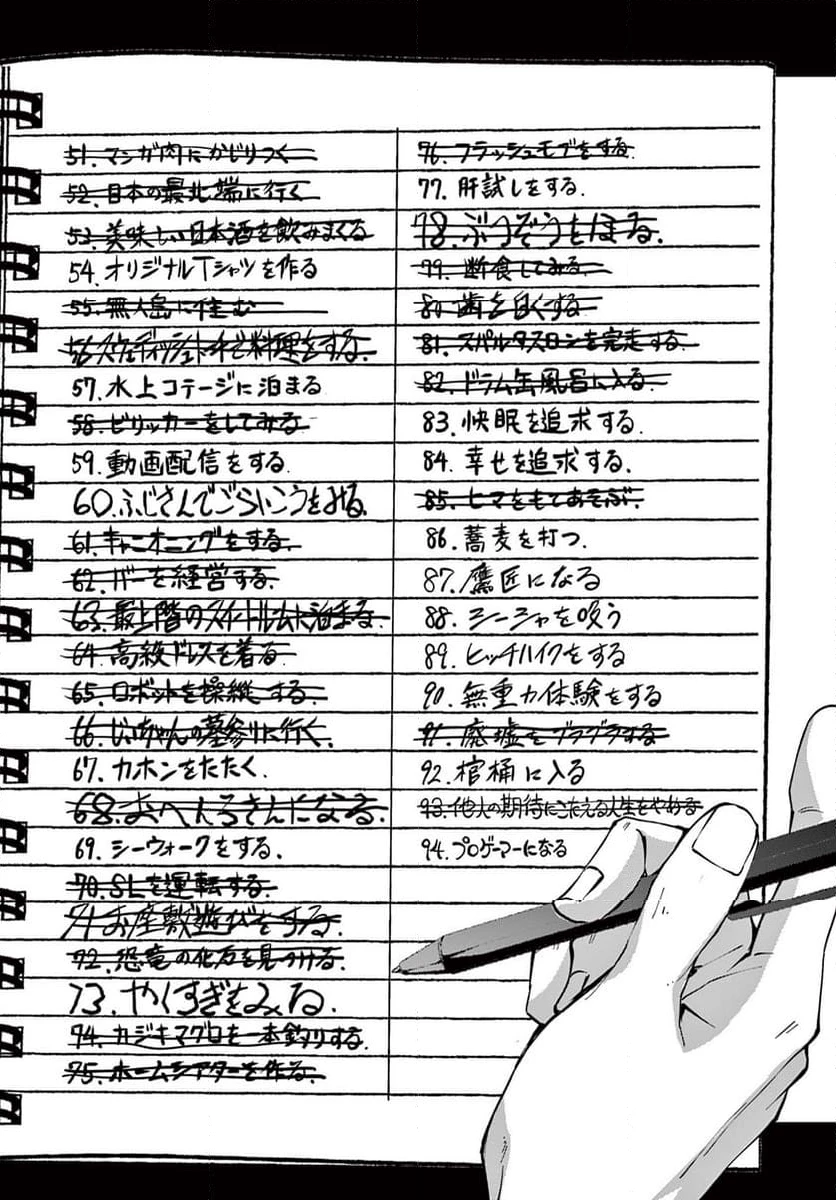 51. マンガ肉にかじりつく
52. 日本の最北端に行く
53. 美味しい日本酒を飲みまくる
54. オリジナルTシャツを作る
55. 無人島に住む
56 スウェディッシュトーチで料理をする.
57. 水上コテージに泊まる
58. ビリッカーをしてみる
59. 動画配信をする.
60. ふじさんでごらいこうをみる.
61. キャニオニングをする.
62. バーを経営する.
63. 最上階のスイートルームに泊まる.
64. 高級ドレスを着る
65. ロボットを操縦する.
66. じいちゃんの墓参りに行く.
67. カホンをたたく.
68. おへんろさんになる.
69. シーウォークをする.
70. SLを運転する.
71 お座敷遊びをする.
72. 恐竜の化石を見つける.
73. やくすぎをみる.
74. カジキマグロを一本釣りする
75. ホームシアターを作る.
76. フラッシュモブをする.
77. 肝試しをする.
78. ぶつぞうをほる.
79. 断食してみる.
80. 歯を白くする
81. スパルタスロンを完走する.
82. ドラム缶風呂に入る.
83. 快眠を追求する.
84. 幸せを追求する.
85. ヒマをもてあそぶ.
86. 蕎麦を打つ.
87. 鷹匠になる
88. シーシャを吸う
89. ヒッチハイクをする
90. 無重力体験をする
91. 廃墟をブラブラする
92. 棺桶に入る
93. 他人の期待にこたえる人生をやめる
94. プロゲーマーになる